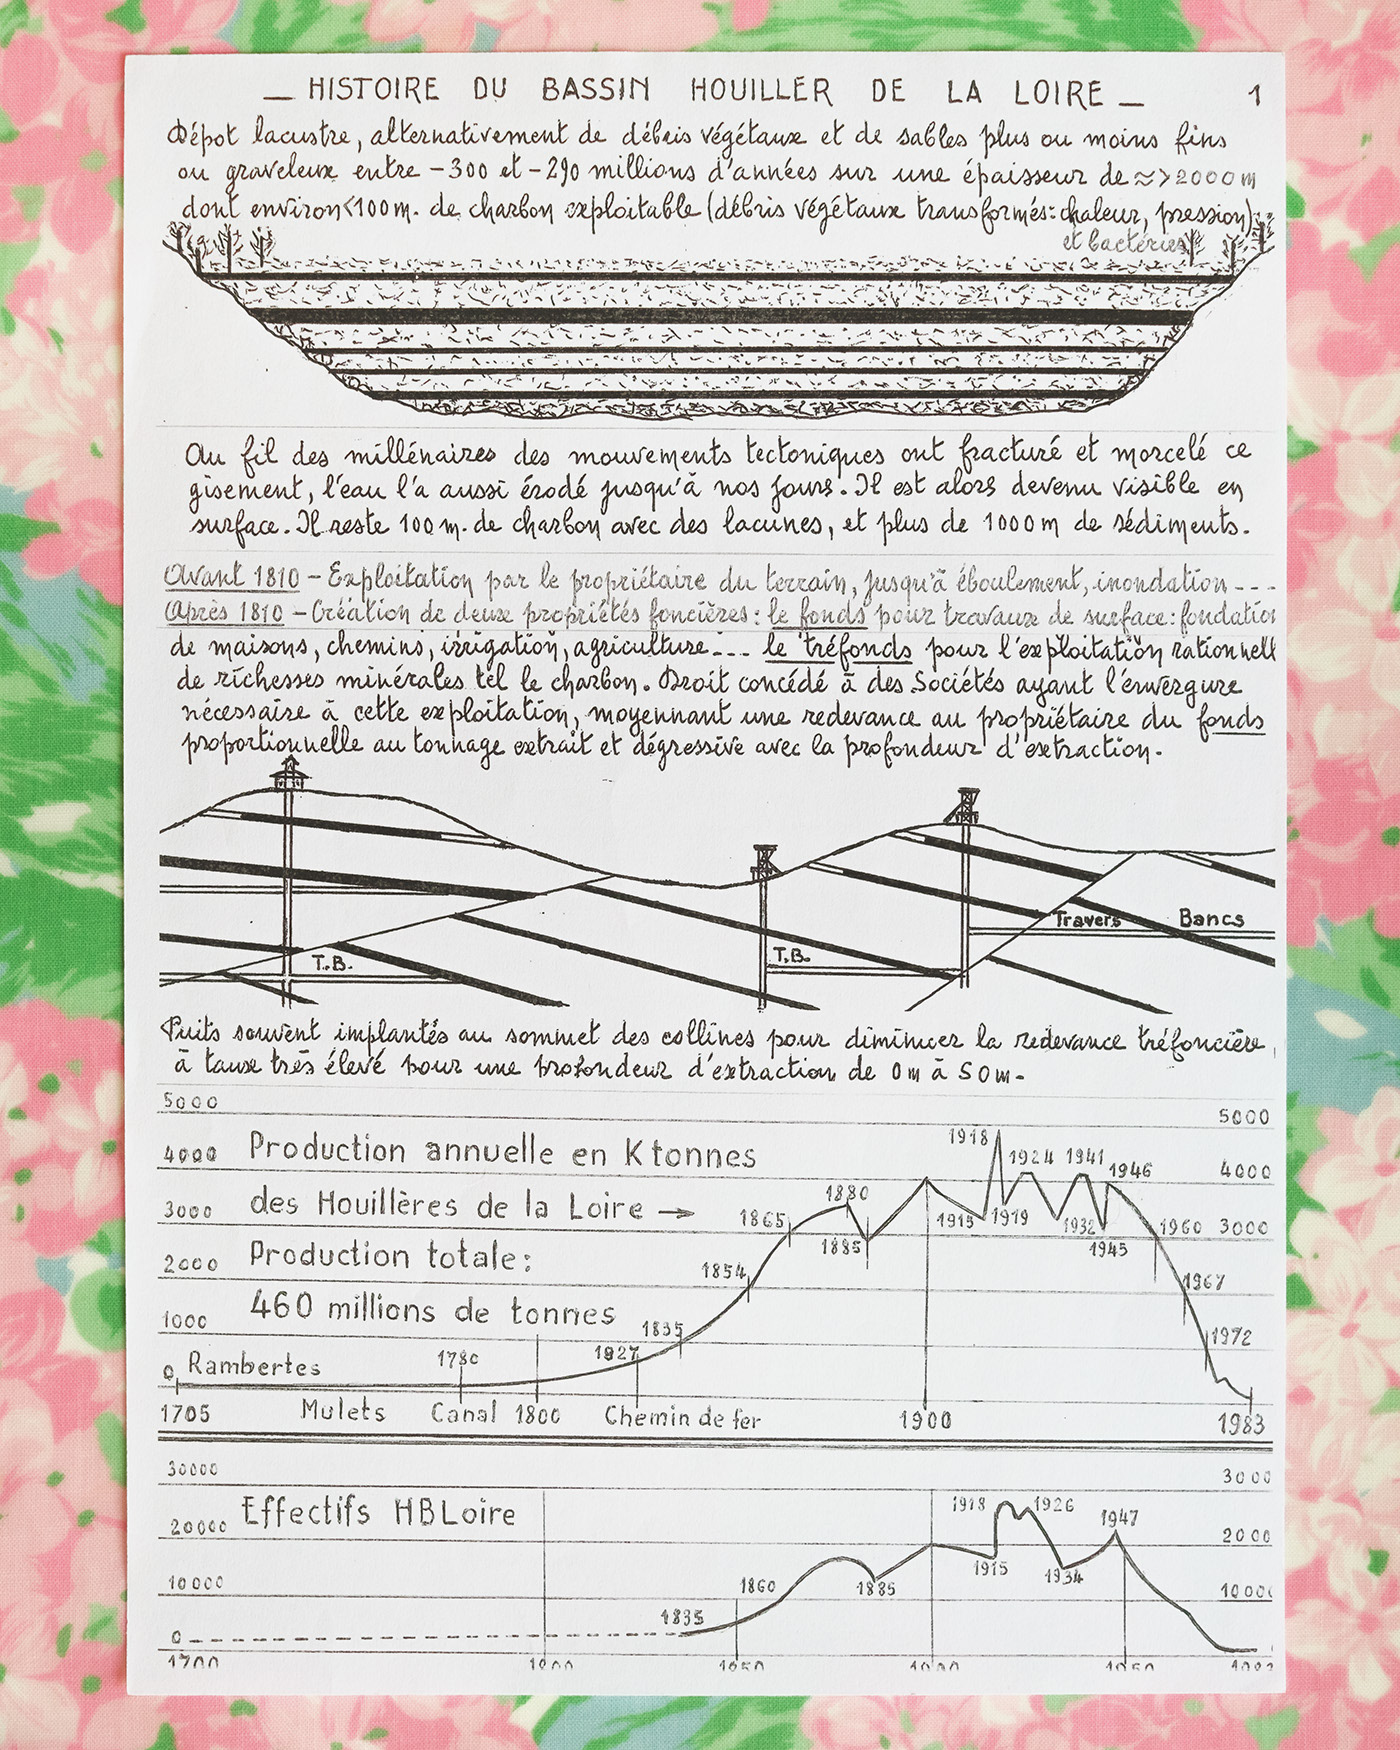 _ HISTOIRE DU BASSIN HOUILLER DE LA LOIRE _ 1
Dépot lacustre, alternativement de débris végétaux et de sables plus ou moins fins
ou graveleux entre -300 et -290 millions d'années sur une épaisseur de ≈>2000m
dont environ<100m. de charbon exploitable (débris végétaux transformés: chaleur, pression)
et bactéries
Au fil des millénaires des mouvements tectoniques ont fracturé et morcelé ce
gisement, l'eau l'a aussi érodé jusqu'à nos jours. Il est alors devenu visible en
surface. Il reste 100 m. de charbon avec des lacunes, et plus de 1000 m de sédiments.
Avant 1810 - Exploitation par le propriétaire du terrain, jusqu'à éboulement, inondation ---
Après 1810 - Création de deux propriétés foncières: le fonds pour travaux de surface: fondation
de maisons, chemins, irrigation, agriculture --- le tréfonds pour l'exploitation rationnell
de richesses minérales tel le charbon. Droit concédé à des Sociétés ayant l'envergure
nécessaire à cette exploitation, moyennant une redevance au propriétaire du fonds
proportionnelle au tonnage extrait et dégressive avec la profondeur d'extraction.
Travers Bancs
T.B.
T.B.
Puits souvent implantés au sommet des collines pour diminuer la redevance tréfoncière,
à taux très élevé pour une profondeur d'extraction de 0m à 50m.
5000 5000
1918
4000 Production annuelle en Ktonnes 1924 1941 1946 4000
3000 des Houillères de la Loire → 1865 1880 1915 1919 1932 1960 3000
1885 1945
2000 Production totale: 1854 1967
1000 460 millions de tonnes 1835 1972
0 Rambertes 1780 1827
1705 Mulets Canal 1800 Chemin de fer 1900 1983
30000 3000
Effectifs HBLoire 1918 1926 1947
20000 2000
1915 1934
10000 1860 1885 1000
1835
0
1700 1800 1850 1900 1950 1983